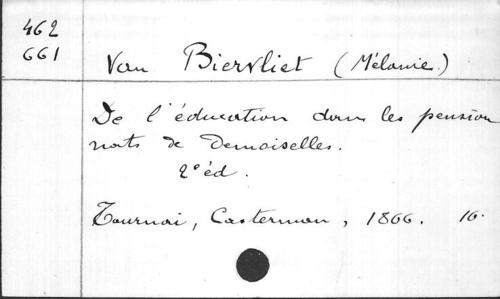 462
661
Van Biervliet (Mélanie.)
De l'éducation dans les pension
nats de Demoiselles.
2e éd.
Tournai, Casterman, 1866. 16.